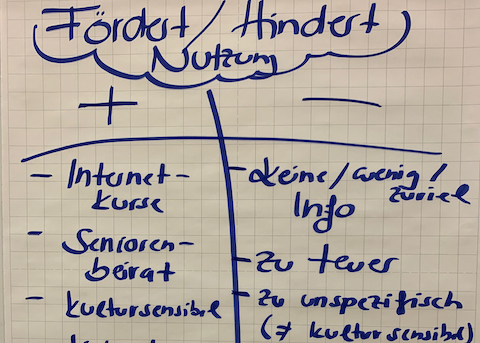 Fördert / Hindert
Nutzung
+
–
– Internet-
kurse
– Senioren-
beirat
– kultursensibel
– keine / wenig /
zuviel
Info
– zu teuer
– zu unspezifisch
(≠ kultursensibel)